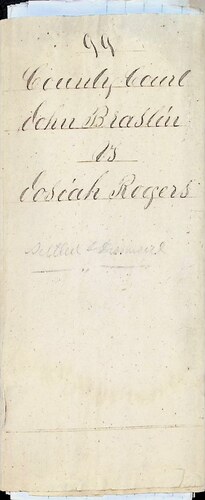 99
County Court
John Braslin
vs
Josiah Rogers
Settled & Dismissed